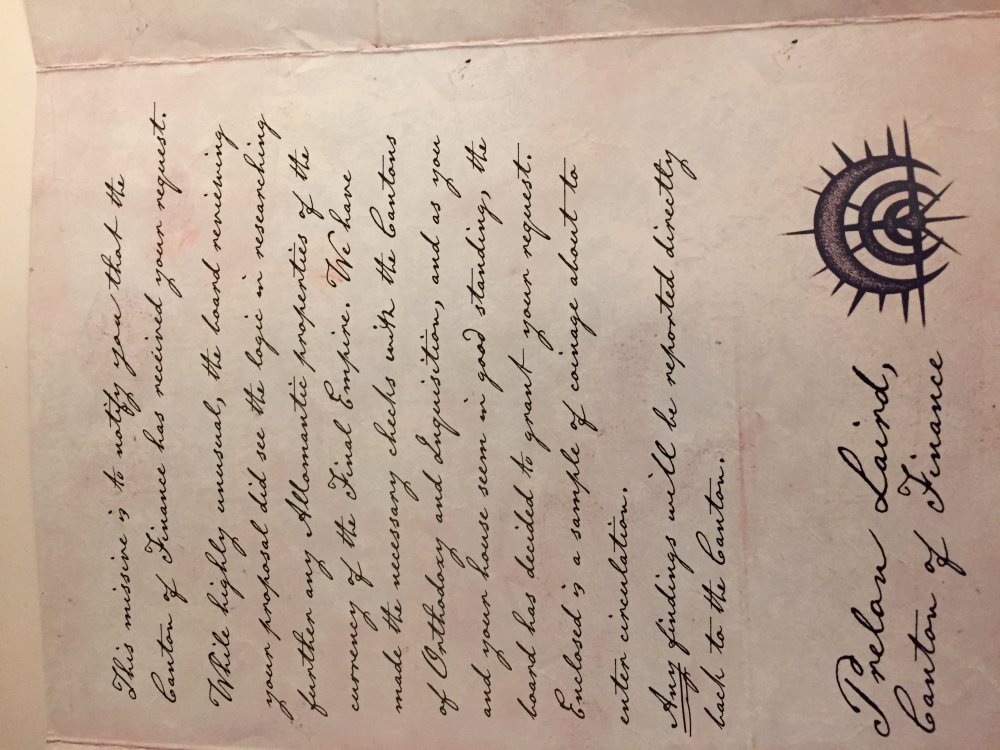 This missive is to notify you that the
Canton of Finance has received your request.
While highly unusual, the board reviewing
your proposal did see the logic in researching
further any Allomantic properties of the
currency of the Final Empire. We have
made the necessary checks with the Cantons
of Orthodoxy and Inquisition, and as you
and your house seem in good standing, the
board has decided to grant your request.
Enclosed is a sample of coinage about to
enter circulation.
Any findings will be reported directly
back to the Canton.
Prelan Laird,
Canton of Finance